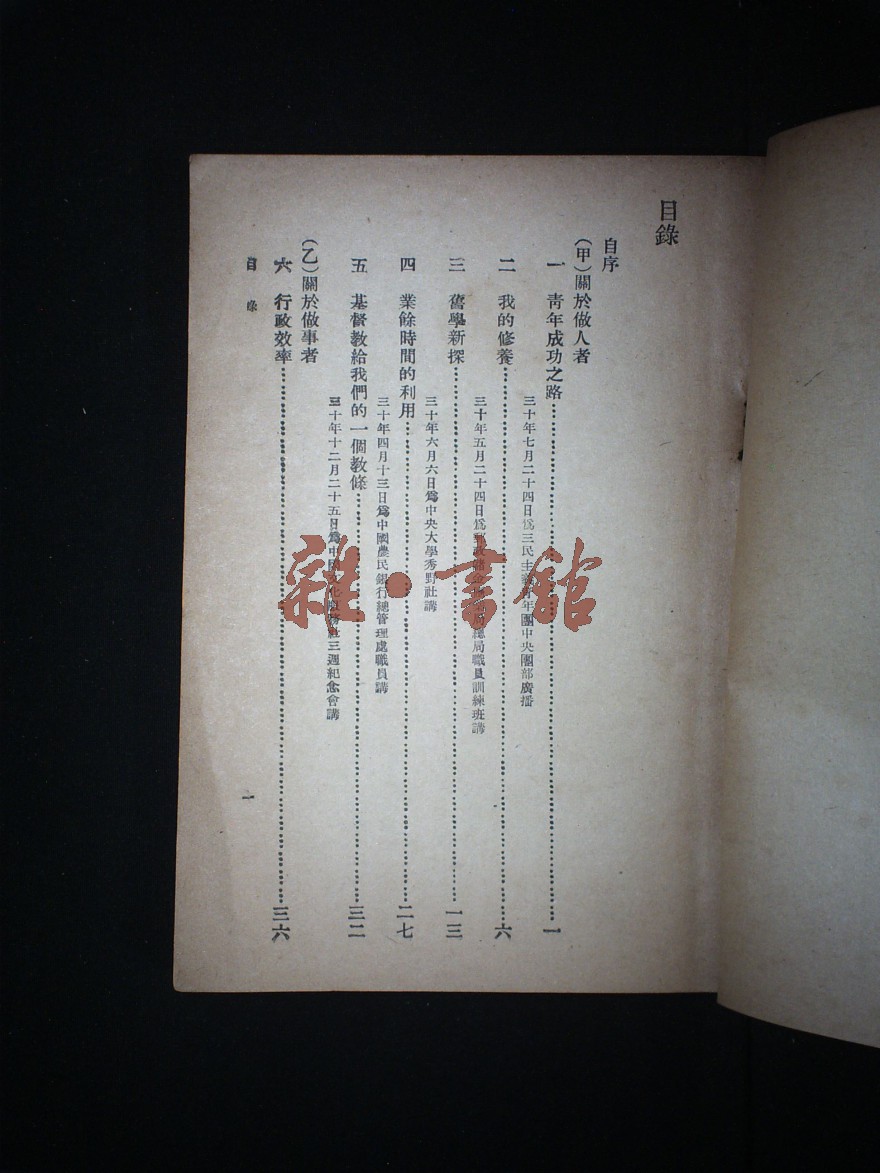 目錄
自序
（甲）關於做人者
一 青年成功之路…………一
三十年七月二十四日爲三民主義青年團中央團部廣播
二 我的修養…………六
三十年五月二十四日爲郵政儲金匯業局總局職員訓練班講
三 舊學新探…………一三
三十年六月六日爲中央大學秀野社講
四 業餘時間的利用…………二七
三十年四月十三日爲中國農民銀行總管理處職員講
五 基督教給我們的一個教條…………三二
三十年十二月二十五日爲中國文化服務社三週紀念會講
（乙）關於做事者
六 行政效率…………三六
目錄
一
雜·書館